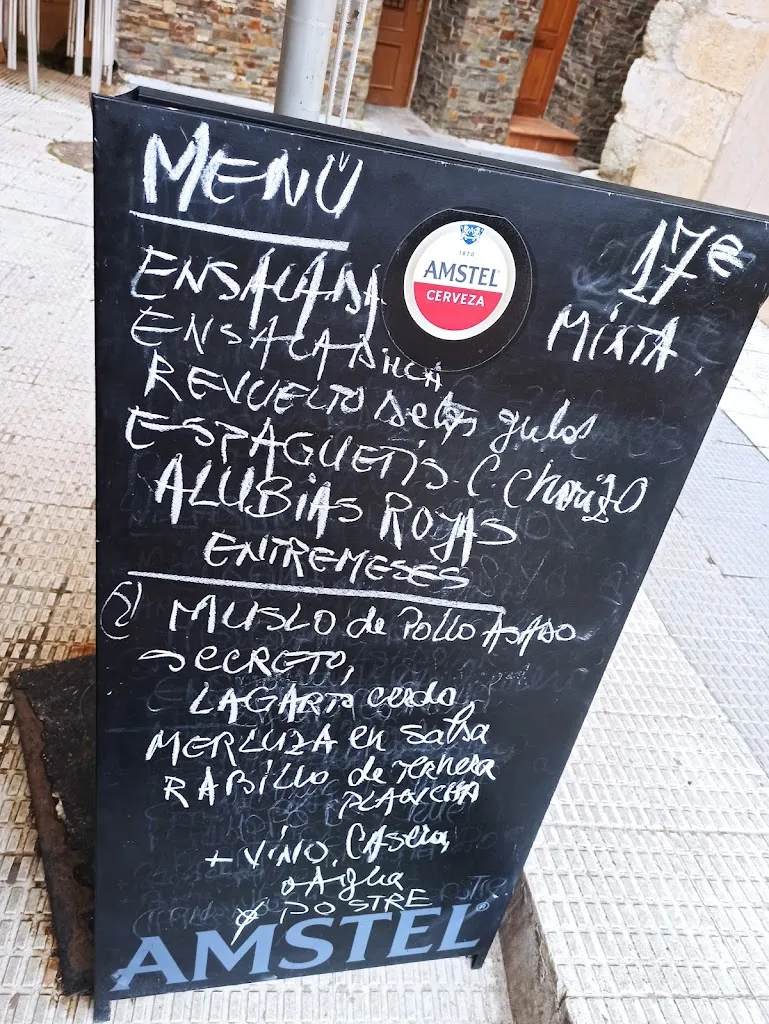 MENÚ
17€
1870
AMSTEL
CERVEZA
ENSALADA MIXTA
ENSALADILLA
REVUELTO DE gulas
ESPAGUETIS C. Chorizo
ALUBIAS ROJAS
ENTREMESES
2) MUSLO de POLLO ASADO
SECRETO,
LAGARTO cerdo,
MERLUZA en salsa
RABILLO de TERNERA
PLANCHA
+ VINO, CASERA,
o AGUA
y POSTRE
AMSTEL®